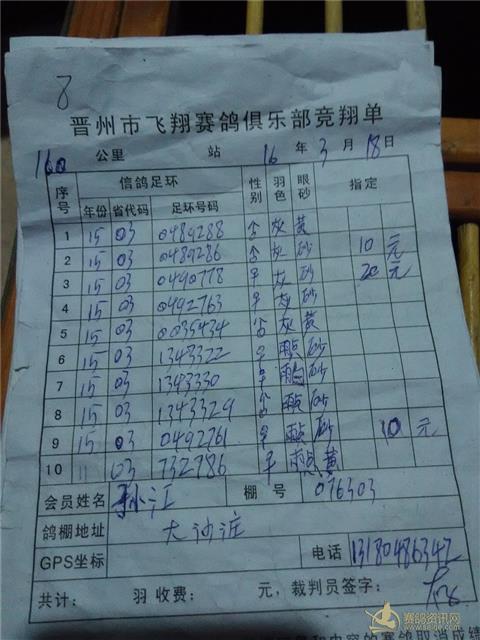 8
晋州市飞翔赛鸽俱乐部竞翔单
160 公里 站 16 年 3 月 18 日
序号 信鸽足环 性别 羽色 眼砂 指定
年份 省代码 足环号码
1 15 03 0489288 灰 黄
2 15 03 0489286 灰 砂 10元
3 15 03 0490778 灰 砂 20元
4 15 03 0492763 灰 砂
5 15 03 0035434 灰 黄
6 15 03 1343322 雨点 砂
7 15 03 1343330 砂
8 15 03 1343329 雨点 砂
9 15 03 0492761 雨点 砂 10元
10 11 03 732786 雨点 黄
会员姓名 孙小江 棚号 076303
鸽棚地址 大沙洼
GPS坐标 电话 13180486342
共计: 羽 收费: 元,裁判员签字:
赛鸽资讯网
www.saige.com